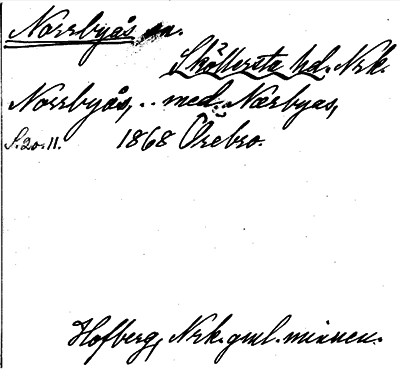 Norrbyås sn.
Sköllersta hd. Nrk.
Norrbyås, .. med. Nœrbyas,
S. 20. 11. 1868 Örebro.
Hofberg, Nrk. gml. minnen.